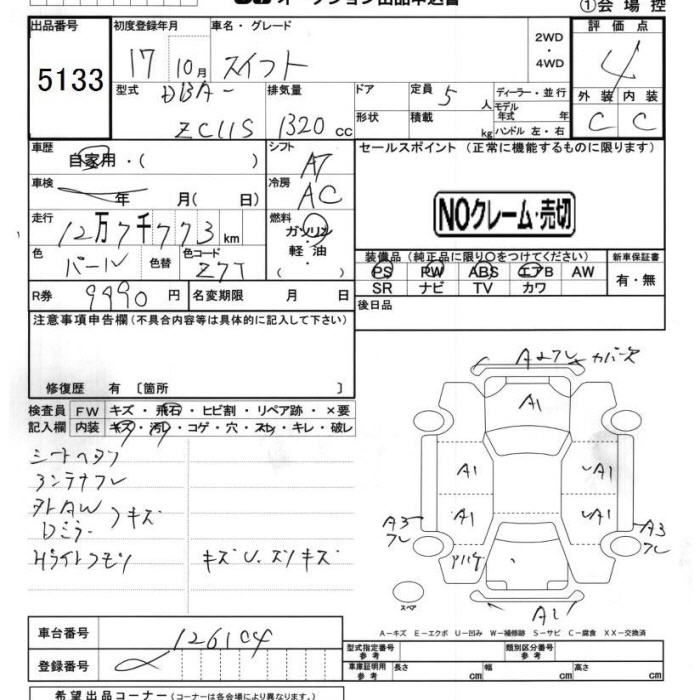 オークション出品申込書
①会場控
出品番号
5133
初度登録年月
17 10月
車名・グレード
スイフト
2WD
・
4WD
評価点
4
型式
DBA-
ZC11S
排気量
1320cc
ドア
形状
定員 5人
積載 kg
ディーラー・並行
モデル
年式 年
ハンドル 左・右
外装 内装
C C
車歴
自家用・( )
シフト
AT
セールスポイント (正常に機能するものに限ります)
車検
年 月(日)
冷房
AC
NOクレーム・売切
走行
12万7千773km
燃料
ガソリン
軽油
・( )
色
パール
色替
色コード
Z7T
装備品(純正品に限り○をつけてください)
PS PW ABS エアB AW
SR ナビ TV カワ
新車保証書
有・無
R券 9490円
名変期限 月 日
後日品
注意事項申告欄(不具合内容等は具体的に記入して下さい)
修復歴 有 〔箇所 〕
検査員
記入欄
FW キズ・飛石・ヒビ割・リペア跡・×要
内装 キズ・汚レ・コゲ・穴・スレ・キレ・破レ
シートヘタリ
アンテナフレ
Dミラー
キズ U. スリキズ
A2フレ
A1
A1
A1
A1
A1
A3
フレ
A3
フレ
A1
スペア
A-キズ E-エクボ U-凹み W-補修跡 S-サビ C-腐食 XX-交換済
車台番号
126104
登録番号
型式指定番号
参考
類別区分番号
参考
車庫証明用
参考
長さ cm
幅 cm
高さ cm
希望出品コーナー(コーナーは各会場により異なります。)